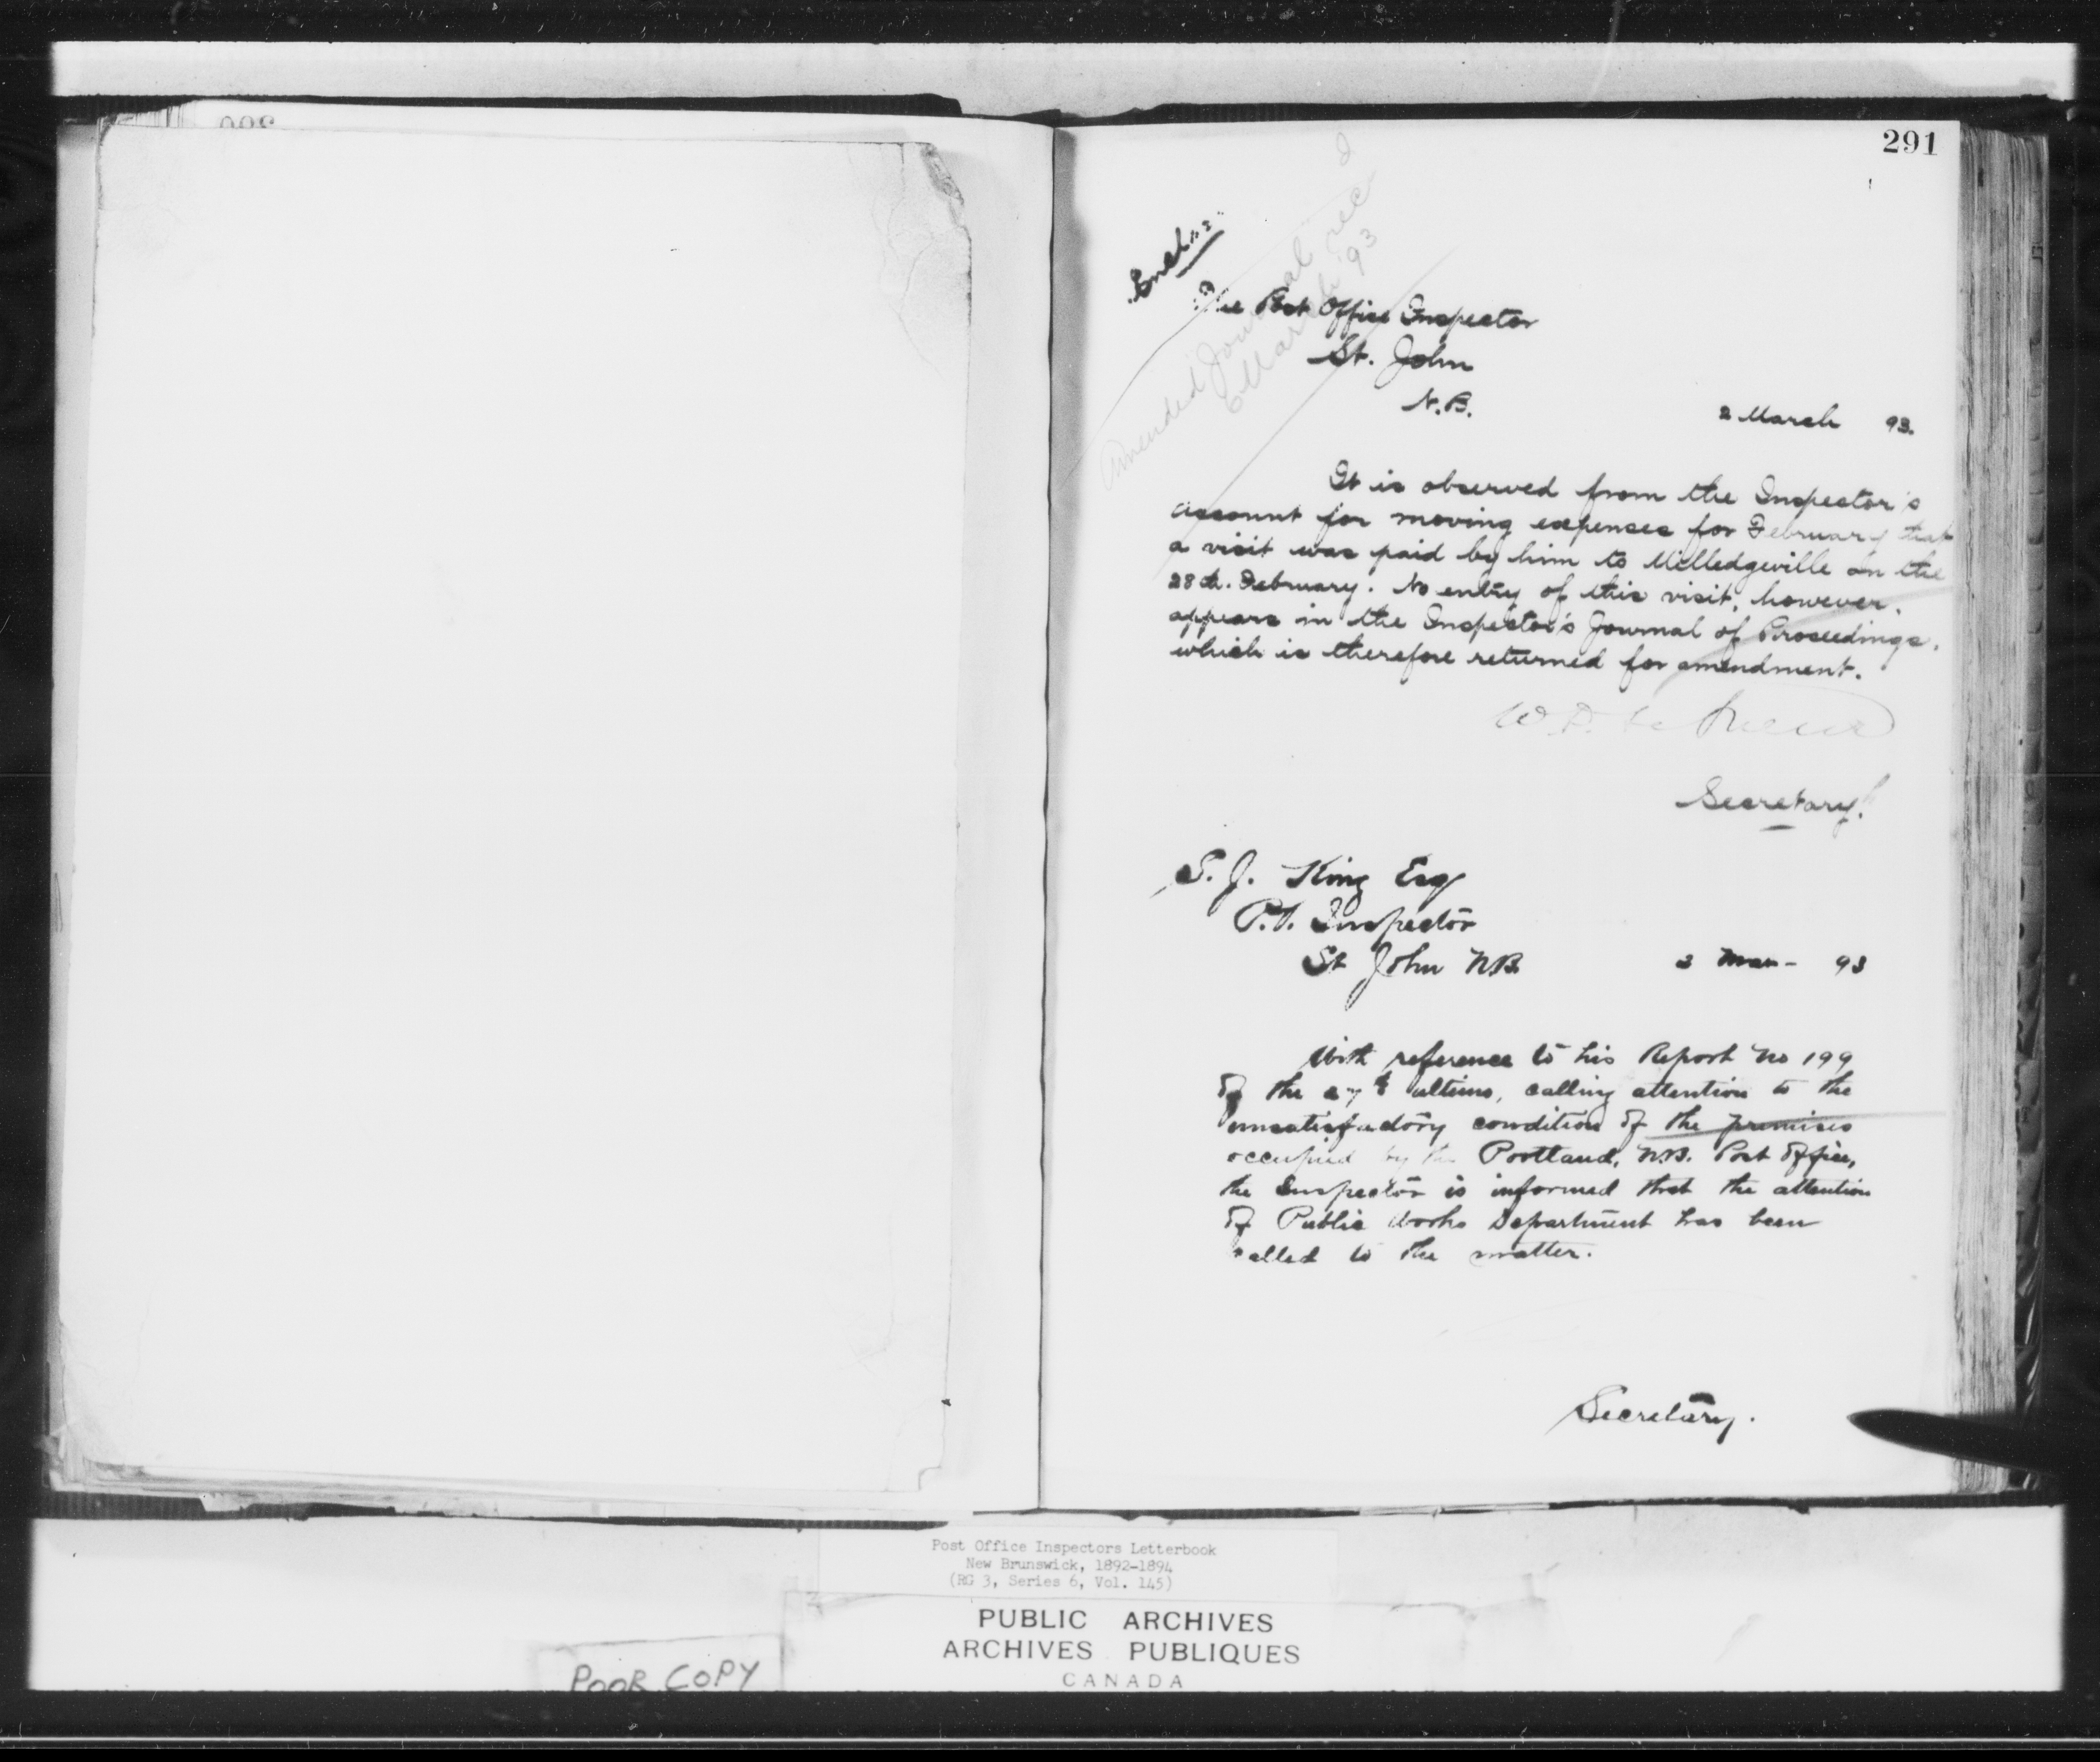 291
Encl.
The Post Office Inspector
St. John
N.B.
2 March 93.
Amended Journal rec
6 March '93
It is observed from the Inspector's
account for moving expenses for February that
a visit was paid by him to Milledgeville on the
28th. February. No entry of this visit, however,
appears in the Inspector's Journal of Proceedings,
which is therefore returned for amendment.
W.D. Le Sueur
Secretary.
S. J. King Esq
P.O. Inspector
St John N.B. 3 Mar - 93
With reference to his Report No 199
of the 27th ultimo, calling attention to the
unsatisfactory condition of the premises
occupied by the Portland, N.B. Post Office,
the Inspector is informed that the attention
of Public Works Department has been
called to the matter.
Secretary.
Post Office Inspectors Letterbook
New Brunswick, 1892-1894
(RG 3, Series 6, Vol. 145)
PUBLIC ARCHIVES
ARCHIVES PUBLIQUES
CANADA
POOR COPY